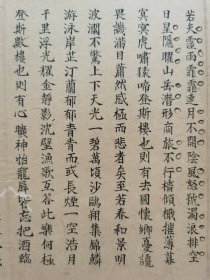 若夫霪雨霏霏連月不開陰風怒號濁浪排空
日星隱曜山岳潛形商旅不行檣傾楫摧薄暮
冥冥虎嘯猿啼登斯樓也則有去國懷鄉憂讒
畏譏滿目蕭然感極而悲者矣至若春和景明
波瀾不驚上下天光一碧萬頃沙鷗翔集錦鱗
游泳岸芷汀蘭郁郁青青而或長煙一空浩月
千里浮光耀金靜影沈璧漁歌互答此樂何極
登斯樓也則有心曠神怡寵辱皆忘把酒臨